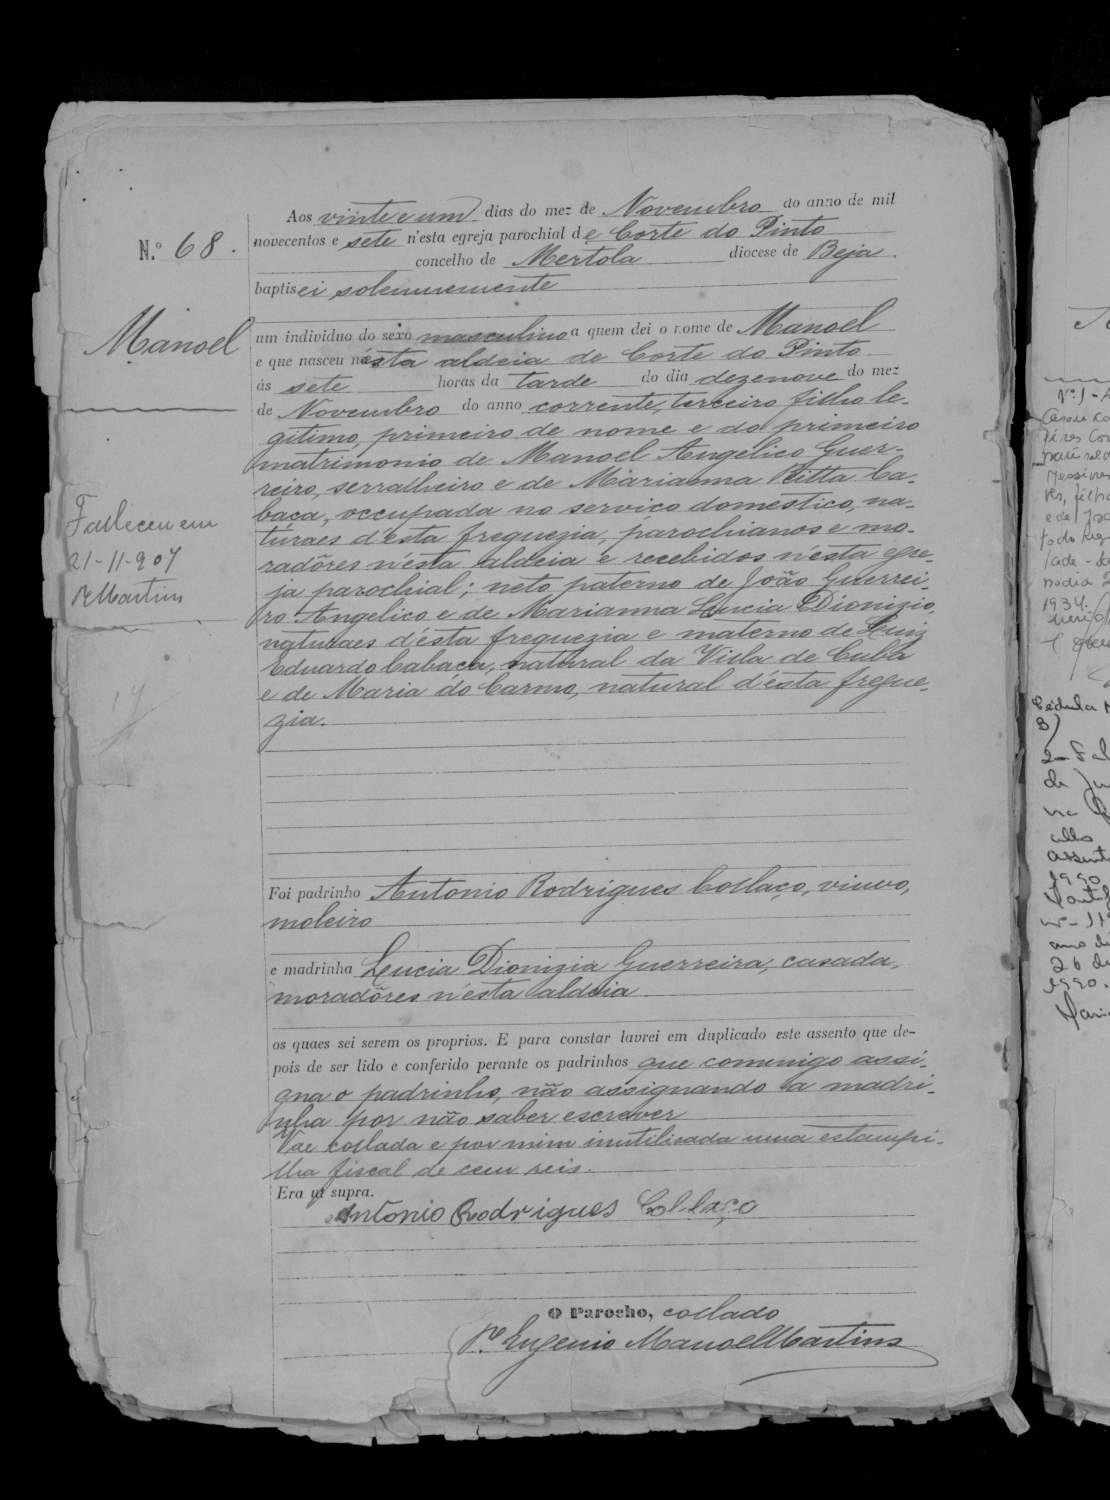 Aos vinte e um dias do mez de Novembro do anno de mil
novecentos e sete n'esta egreja parochial de Corte do Pinto
concelho de Mertola diocese de Beja.
baptisei solemnemente
N.º 68.
Manoel
um individuo do sexo masculino a quem dei o nome de Manoel
e que nasceu n'esta aldeia de Corte do Pinto
ás sete horas da tarde do dia dezenove do mez
de Novembro do anno corrente, terceiro filho le-
gitimo, primeiro de nome e do primeiro
matrimonio de Manoel Angelico Guer-
reiro, serralheiro e de Marianna Ritta Ca-
baca, occupada no serviço domestico, na-
turaes d'esta freguezia, parochianos e mo-
radôres n'esta aldeia e recebidos n'esta egre-
ja parochial; neto paterno de João Guerrei-
ro Angelico e de Marianna Lucia Dionizio,
naturaes d'esta freguezia e materno de Luiz
Eduardo Cabaca, natural da Villa de Cuba
e de Maria do Carmo, natural d'esta fregue-
zia.
Falleceu em
21-11-907
Martins
14
Foi padrinho Antonio Rodrigues Collaço, viuvo,
moleiro
e madrinha Lucia Dionizia Guerreira, casada,
moradôres n'esta aldeia
os quaes sei serem os proprios. E para constar lavrei em duplicado este assento que de-
pois de ser lido e conferido perante os padrinhos que commigo assi-
gna o padrinho, não assignando a madri-
nha por não saber escrever
Vae collada e por mim inutilisada uma estampi-
lha fiscal de cem reis.
Era ut supra.
Antonio Rodrigues Collaço
O Parocho, collado
P.e Eugenio Manoel Martins
Nº 1 -
1934.
Cedula
3)
2-
de
assent
1990
26 de
1990.